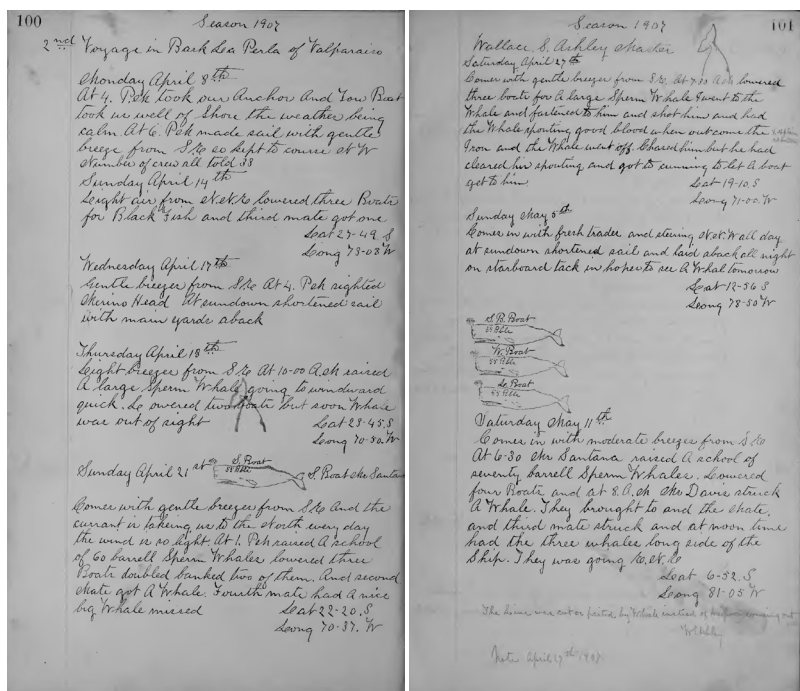 100
Season 1907
2nd Voyage in Bark Lea Perla of Valparaiso
Monday April 8th
At 4. P.M. took our Anchor And Tow Boat
took us well of Shore the weather being
calm. At 6. P.M. made sail with gentle
breeze from S.E. so kept to course N.W
Number of crew all told 38
Sunday April 14th
Light air from N.N.E. lowered three Boats
for Black Fish and third mate got one
Lat 27-49 S
Long 73-03 W
Wednesday April 17th
Gentle breezes from S.E. At 4. P.M. sighted
Merino Head At sundown shortened sail
with main yards aback
Thursday April 18th
Light breezes from S.E. At 10-00 A.M. raised
A large Sperm Whale going to windward
quick. Lowered two Boats but soon Whale
was out of sight
Lat 23-45. S
Long 70-50. W
Sunday April 21st
S. Boat
S. Boat Mr Santana
Comes with gentle breezes from S.E. And the
currant is takeing us to the North every day
the wind is so light At 1. P.M. raised A school
of 60 barrell Sperm Whales lowered three
Boats doubled banked two of them. And second
Mate got A Whale. Fourth mate had A nice
big Whale missed
Lat 22-20. S
Long 70-37. W
101
Season 1907
Wallace. S. Ashley Master
Saturday April 27th
Comes with gentle breezes from S.E. At 7-30 A.M. lowered
three boats for A large Sperm Whale I went to the
Whale and fastened to him and shot him and had
the Whale spouting good blood when out come the
Iron and the Whale went off. Chased him but he had
cleared his spouting and got to cunning to let A boat
get to him
Lat 19-10. S
Long 71-00. W
Sunday May 5th
Comes in with fresh trades and stering N.N.W all day
at sundown shortened sail and laid aback all night
on starboard tack in hopes to see A Whal tomorrow
Lat 12-36 S
Long 78-50 W
S.B. Boat
W. Boat
L. Boat
Saturday May 11th
Comes in with moderate breezes from S.E
At 6-30 Mr Santana raised A school of
seventy barrell Sperm Whales. Lowered
four Boats and at 8. A.M. Mr Davis struck
A Whale. They brought to and the Mate.
and third mate struck and at noon time
had the three whales long side of the
Ship. They was going E.N.E
Lat 6-52. S
Long 81-05 W
The line was cut or parted by Whale instead of
Note April 1907